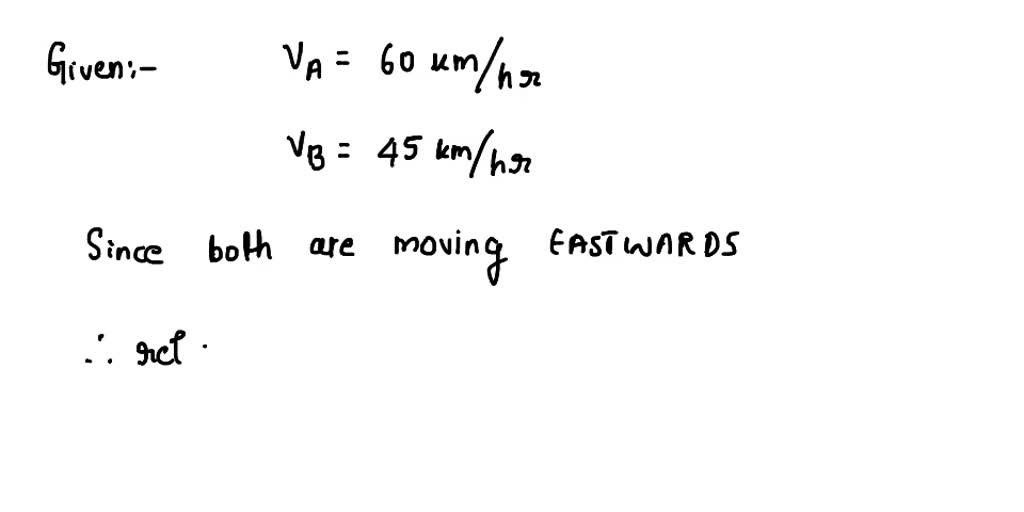 Given:- V_A = 60 km/hr
V_B = 45 km/hr
Since both are moving EASTWARDS
∴ rel .